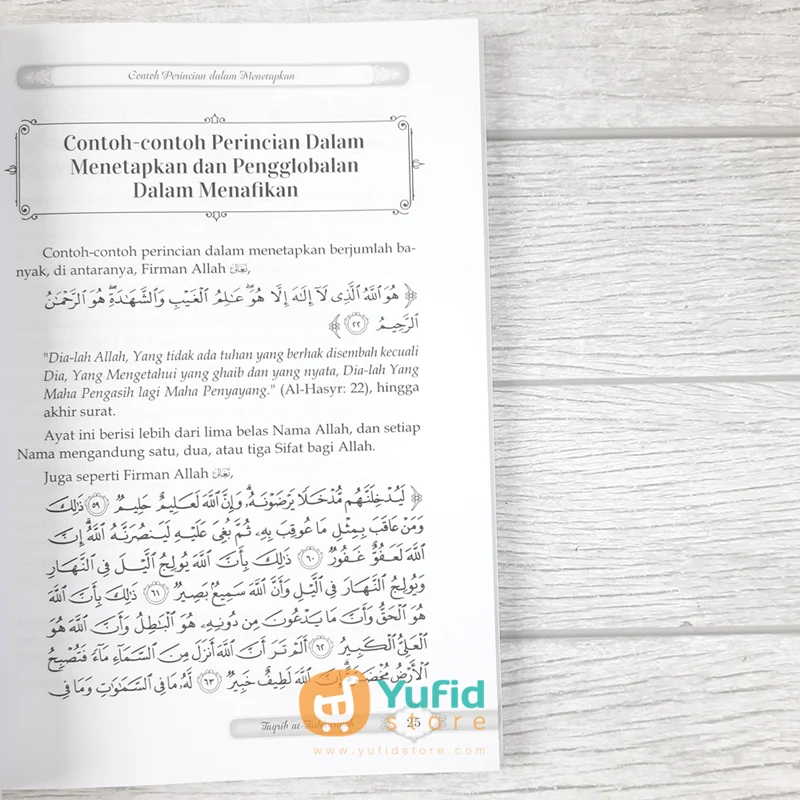 Contoh Perincian dalam Menetapkan
Contoh-contoh Perincian Dalam
Menetapkan dan Pengglobalan
Dalam Menafikan
Contoh-contoh perincian dalam menetapkan berjumlah ba-
nyak, di antaranya, Firman Allah تعالى,
﴿ هُوَ ٱللَّهُ ٱلَّذِى لَآ إِلَـٰهَ إِلَّا هُوَ ۖ عَـٰلِمُ ٱلْغَيْبِ وَٱلشَّهَـٰدَةِ ۖ هُوَ ٱلرَّحْمَـٰنُ
ٱلرَّحِيمُ ٢٢ ﴾
"Dia-lah Allah, Yang tidak ada tuhan yang berhak disembah kecuali
Dia, Yang Mengetahui yang ghaib dan yang nyata, Dia-lah Yang
Maha Pengasih lagi Maha Penyayang." (Al-Hasyr: 22), hingga
akhir surat.
Ayat ini berisi lebih dari lima belas Nama Allah, dan setiap
Nama mengandung satu, dua, atau tiga Sifat bagi Allah.
Juga seperti Firman Allah تعالى,
﴿ لَيُدْخِلَنَّهُم مُّدْخَلًا يَرْضَوْنَهُۥ ۗ وَإِنَّ ٱللَّهَ لَعَلِيمٌ حَلِيمٌ ٥٩ ذَٰلِكَ
وَمَنْ عَاقَبَ بِمِثْلِ مَا عُوقِبَ بِهِۦ ثُمَّ بُغِىَ عَلَيْهِ لَيَنصُرَنَّهُ ٱللَّهُ ۗ إِنَّ
ٱللَّهَ لَعَفُوٌّ غَفُورٌ ٦٠ ذَٰلِكَ بِأَنَّ ٱللَّهَ يُولِجُ ٱلَّيْلَ فِى ٱلنَّهَارِ
وَيُولِجُ ٱلنَّهَارَ فِى ٱلَّيْلِ وَأَنَّ ٱللَّهَ سَمِيعٌۢ بَصِيرٌ ٦١ ذَٰلِكَ بِأَنَّ ٱللَّهَ
هُوَ ٱلْحَقُّ وَأَنَّ مَا يَدْعُونَ مِن دُونِهِۦ هُوَ ٱلْبَـٰطِلُ وَأَنَّ ٱللَّهَ هُوَ
ٱلْعَلِىُّ ٱلْكَبِيرُ ٦٢ أَلَمْ تَرَ أَنَّ ٱللَّهَ أَنزَلَ مِنَ ٱلسَّمَآءِ مَآءً فَتُصْبِحُ
ٱلْأَرْضُ مُخْضَرَّةً ۗ إِنَّ ٱللَّهَ لَطِيفٌ خَبِيرٌ ٦٣ لَّهُۥ مَا فِى ٱلسَّمَـٰوَٰتِ وَمَا فِى
Taqrib at-
25
Yufid
store
www.yufidstore.com